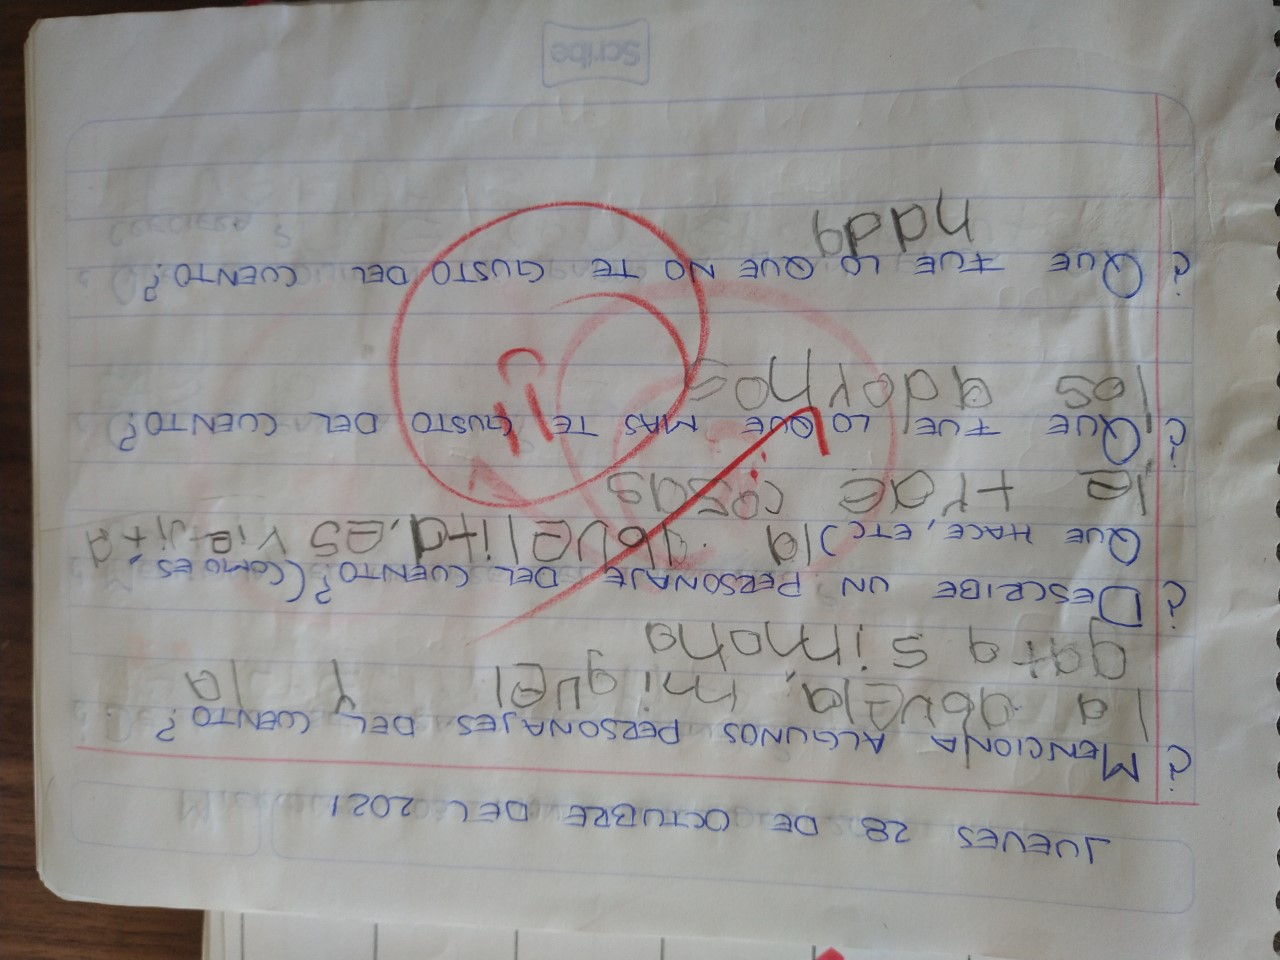 JUEVES 28 DE OCTUBRE DEL 2021
¿MENCIONA ALGUNOS PERSONAJES DEL CUENTO?
la abuela, miguel y la
gata simona
¿DESCRIBE UN PERSONAJE DEL CUENTO? (COMO ES,
QUE HACE, ETC) la abuelita. es viejita
le trae cosas
¿QUE FUE LO QUE MAS TE GUSTO DEL CUENTO?
los adornos
¿QUE FUE LO QUE NO TE GUSTO DEL CUENTO?
nada
Scribe